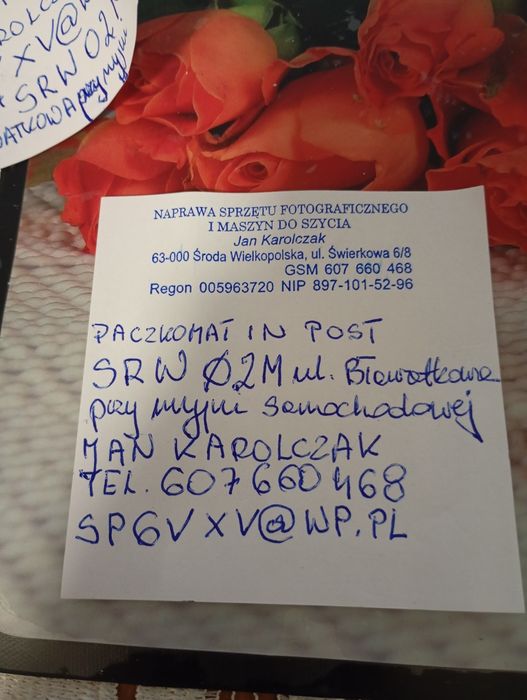 XV@
SRW 02
przy myjni
NAPRAWA SPRZĘTU FOTOGRAFICZNEGO
I MASZYN DO SZYCIA
Jan Karolczak
63-000 Środa Wielkopolska, ul. Świerkowa 6/8
GSM 607 660 468
Regon 005963720 NIP 897-101-52-96
PACZKOMAT IN POST
SRW Ø2M ul. Bławatkowa
przy myjni samochodowej
JAN KAROLCZAK
TEL. 607 660 468
SP6VXV@WP.PL